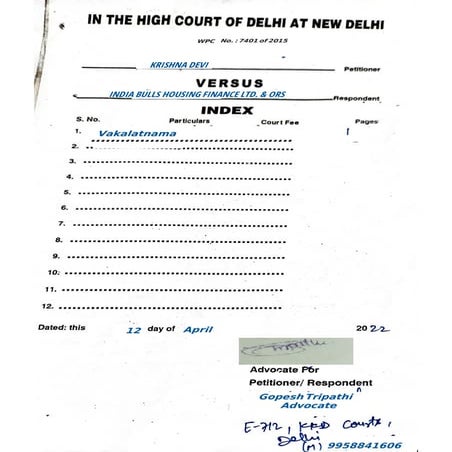 IN THE HIGH COURT OF DELHI AT NEW DELHI
WPC No. : 7401 of 2015
KRISHNA DEVI
Petitioner
VERSUS
INDIA BULLS HOUSING FINANCE LTD. & ORS
Respondent
INDEX
S. No. Particulars Court Fee Pages
1. Vakalatnama 1
2.
3.
4.
5.
6.
7.
8.
9.
10.
11.
12.
Dated: this 12 day of April 2022
Advocate For
Petitioner/ Respondent
Gopesh Tripathi
Advocate
E-712, KKD Courts,
Delhi
(M) 9958841606